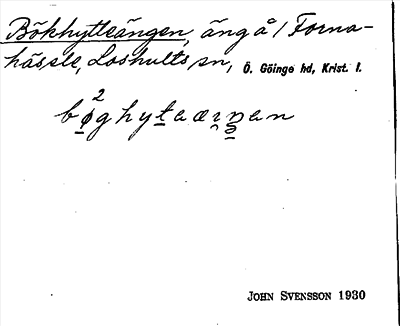 Bökhytteängen, äng å / Forna-
hässle, Loshults sn, Ö. Göinge hd, Krist. l.
2
bøghytaæɪ̯ŋan
JOHN SVENSSON 1930